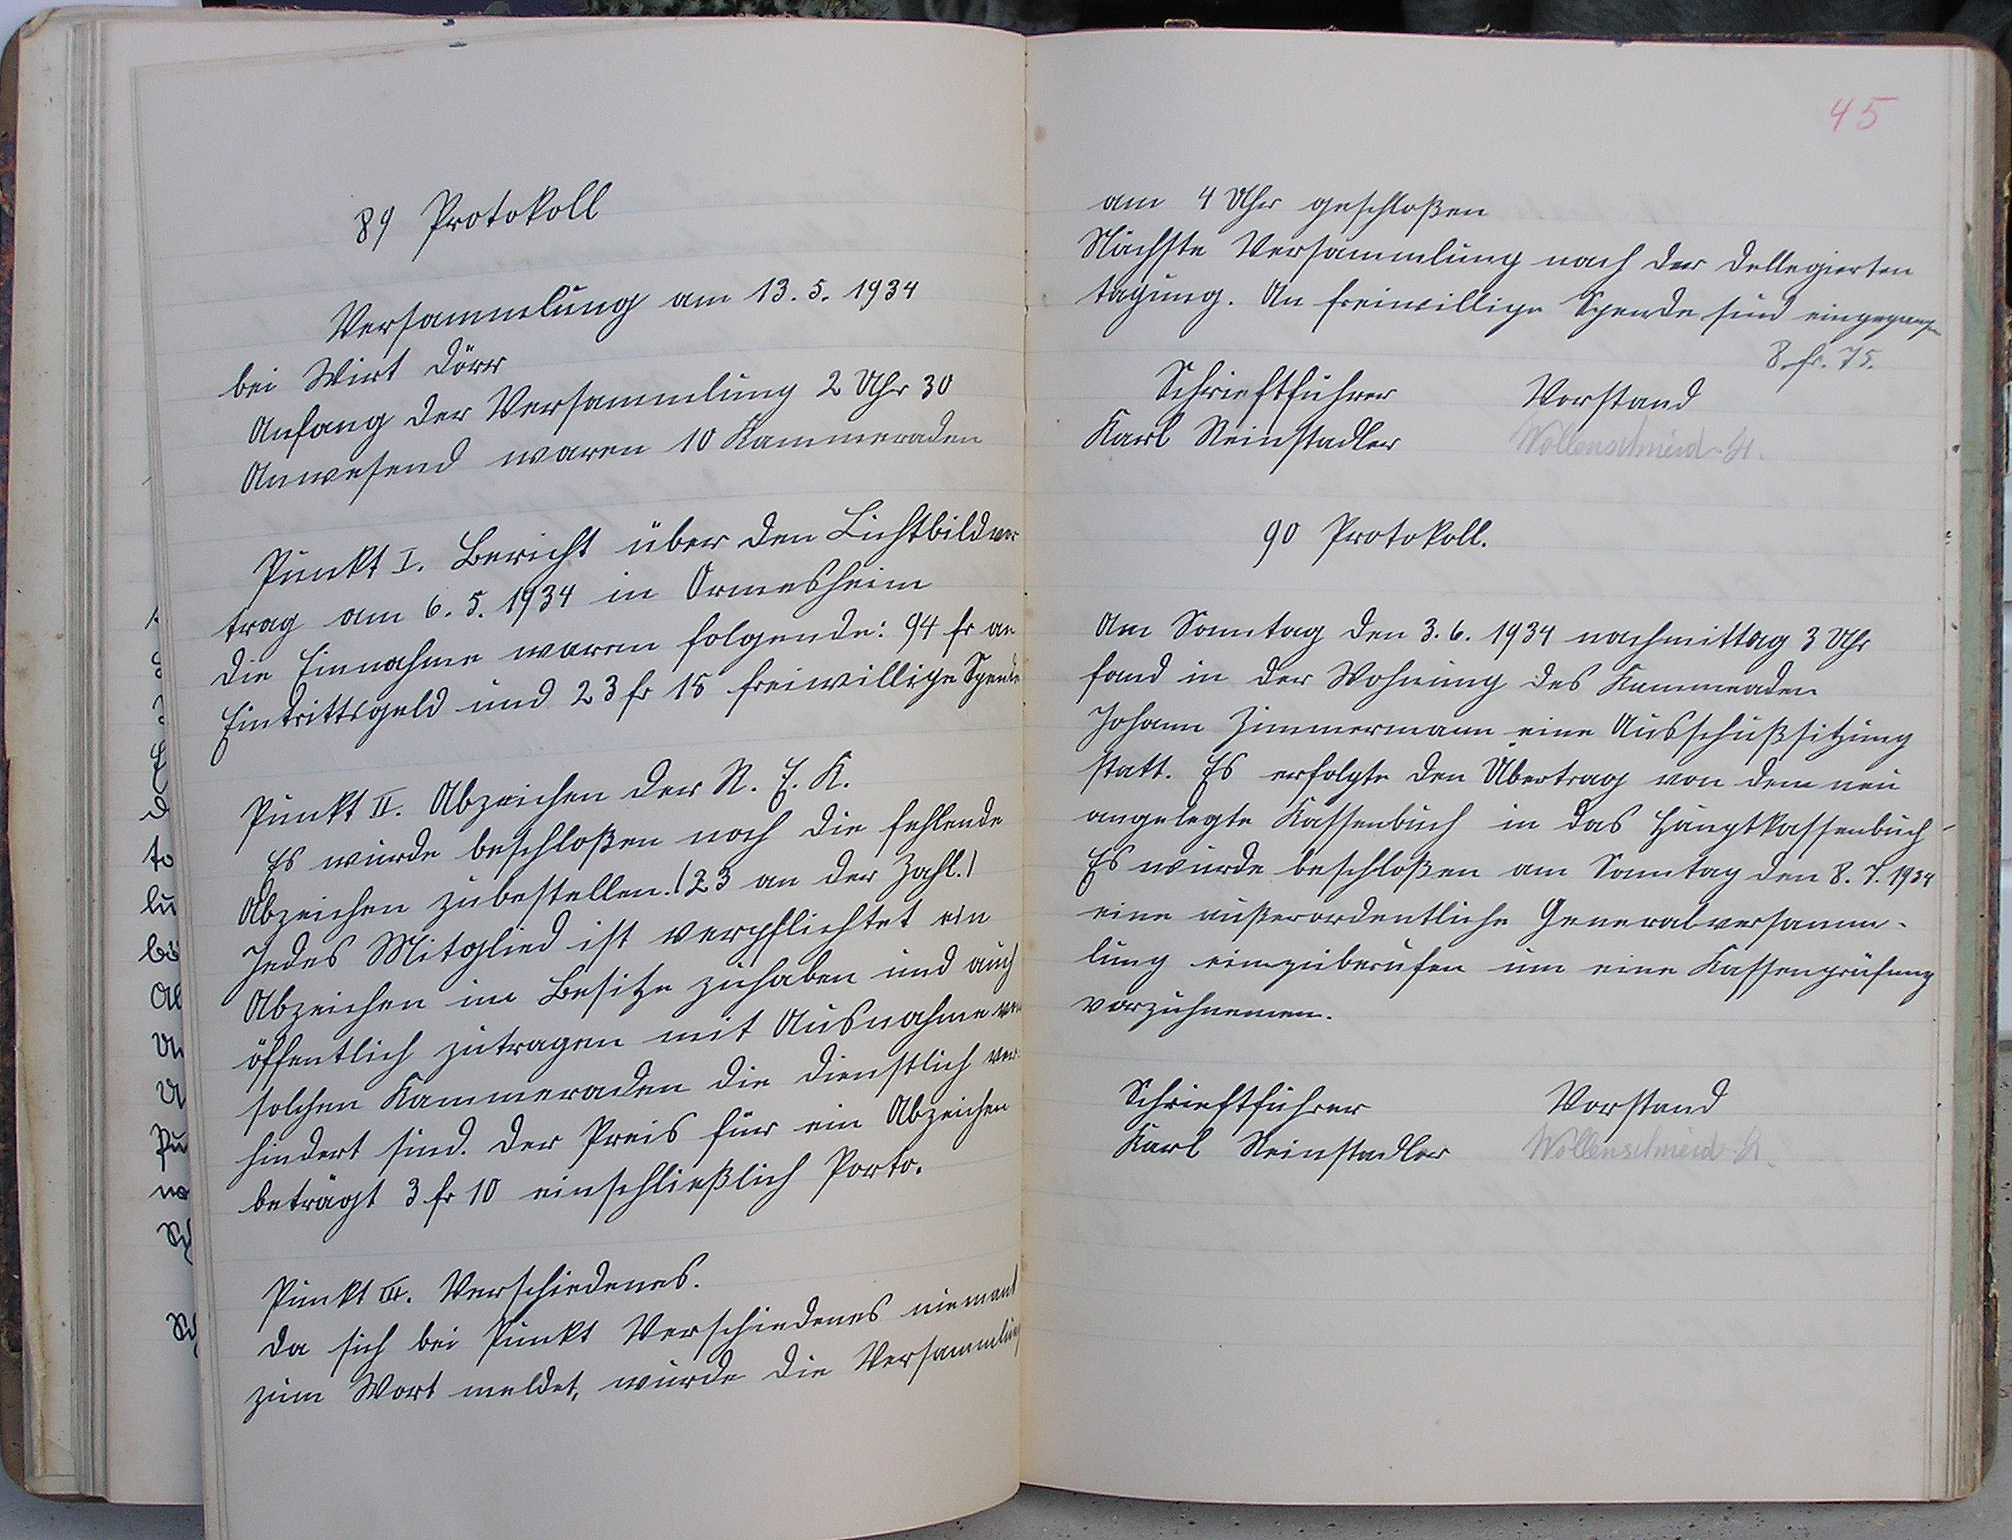 89 Protokoll
Versammlung am 13. 5. 1934
bei Wirt Dörr
Anfang der Versammlung 2 Uhr 30
Anwesend waren 10 Kammeraden
Punkt I. Bericht über den Lichtbildvor
trag am 6. 5. 1934 in Ormesheim
Die Einnahme waren folgende: 94 fr an
Eintrittsgeld und 23 fr 15 freiwillige Spende
Punkt II. Abzeichen der R. E. K.
Es wurde beschloßen noch die fehlende
Abzeichen zubestellen. (23 an der Zahl.)
Jedes Mitglied ist verpflichtet ein
Abzeichen im Besitze zuhaben und auch
öffentlich zutragen mit Ausnahme von
solchen Kammeraden die dienstlich ver-
hindert sind. Der Preis für ein Abzeichen
beträgt 3 fr 10 einschließlich Porto.
Punkt III. Verschiedenes.
Da sich bei Punkt Verschiedenes niemand
zum Wort meldet, wurde die Versammlung
45
am 4 Uhr geschloßen
Nächste Versammlung nach der Dellegierten
tagung. An freiwillige Spende sind eingegangen
8. fr. 75.
Schrieftführer Vorstand
Karl Steinstadler Wollenschneid
90 Protokoll.
Am Sonntag den 3. 6. 1934 nachmittag 3 Uhr
fand in der Wohnung des Kammeaden
Johann Zimmermann eine Ausschußsitzung
statt. Es erfolgte den Übertrag von dem neu
angelegte Kassenbuch in das Hauptkassenbuch
Es wurde beschloßen am Sonntag den 8. 7. 1934
eine außerordentliche Generalversamm-
lung einzuberufen um eine Kassenprüfung
vorzuhnemen.
Schrieftführer Vorstand
Karl Steinstadler Wollenschneid